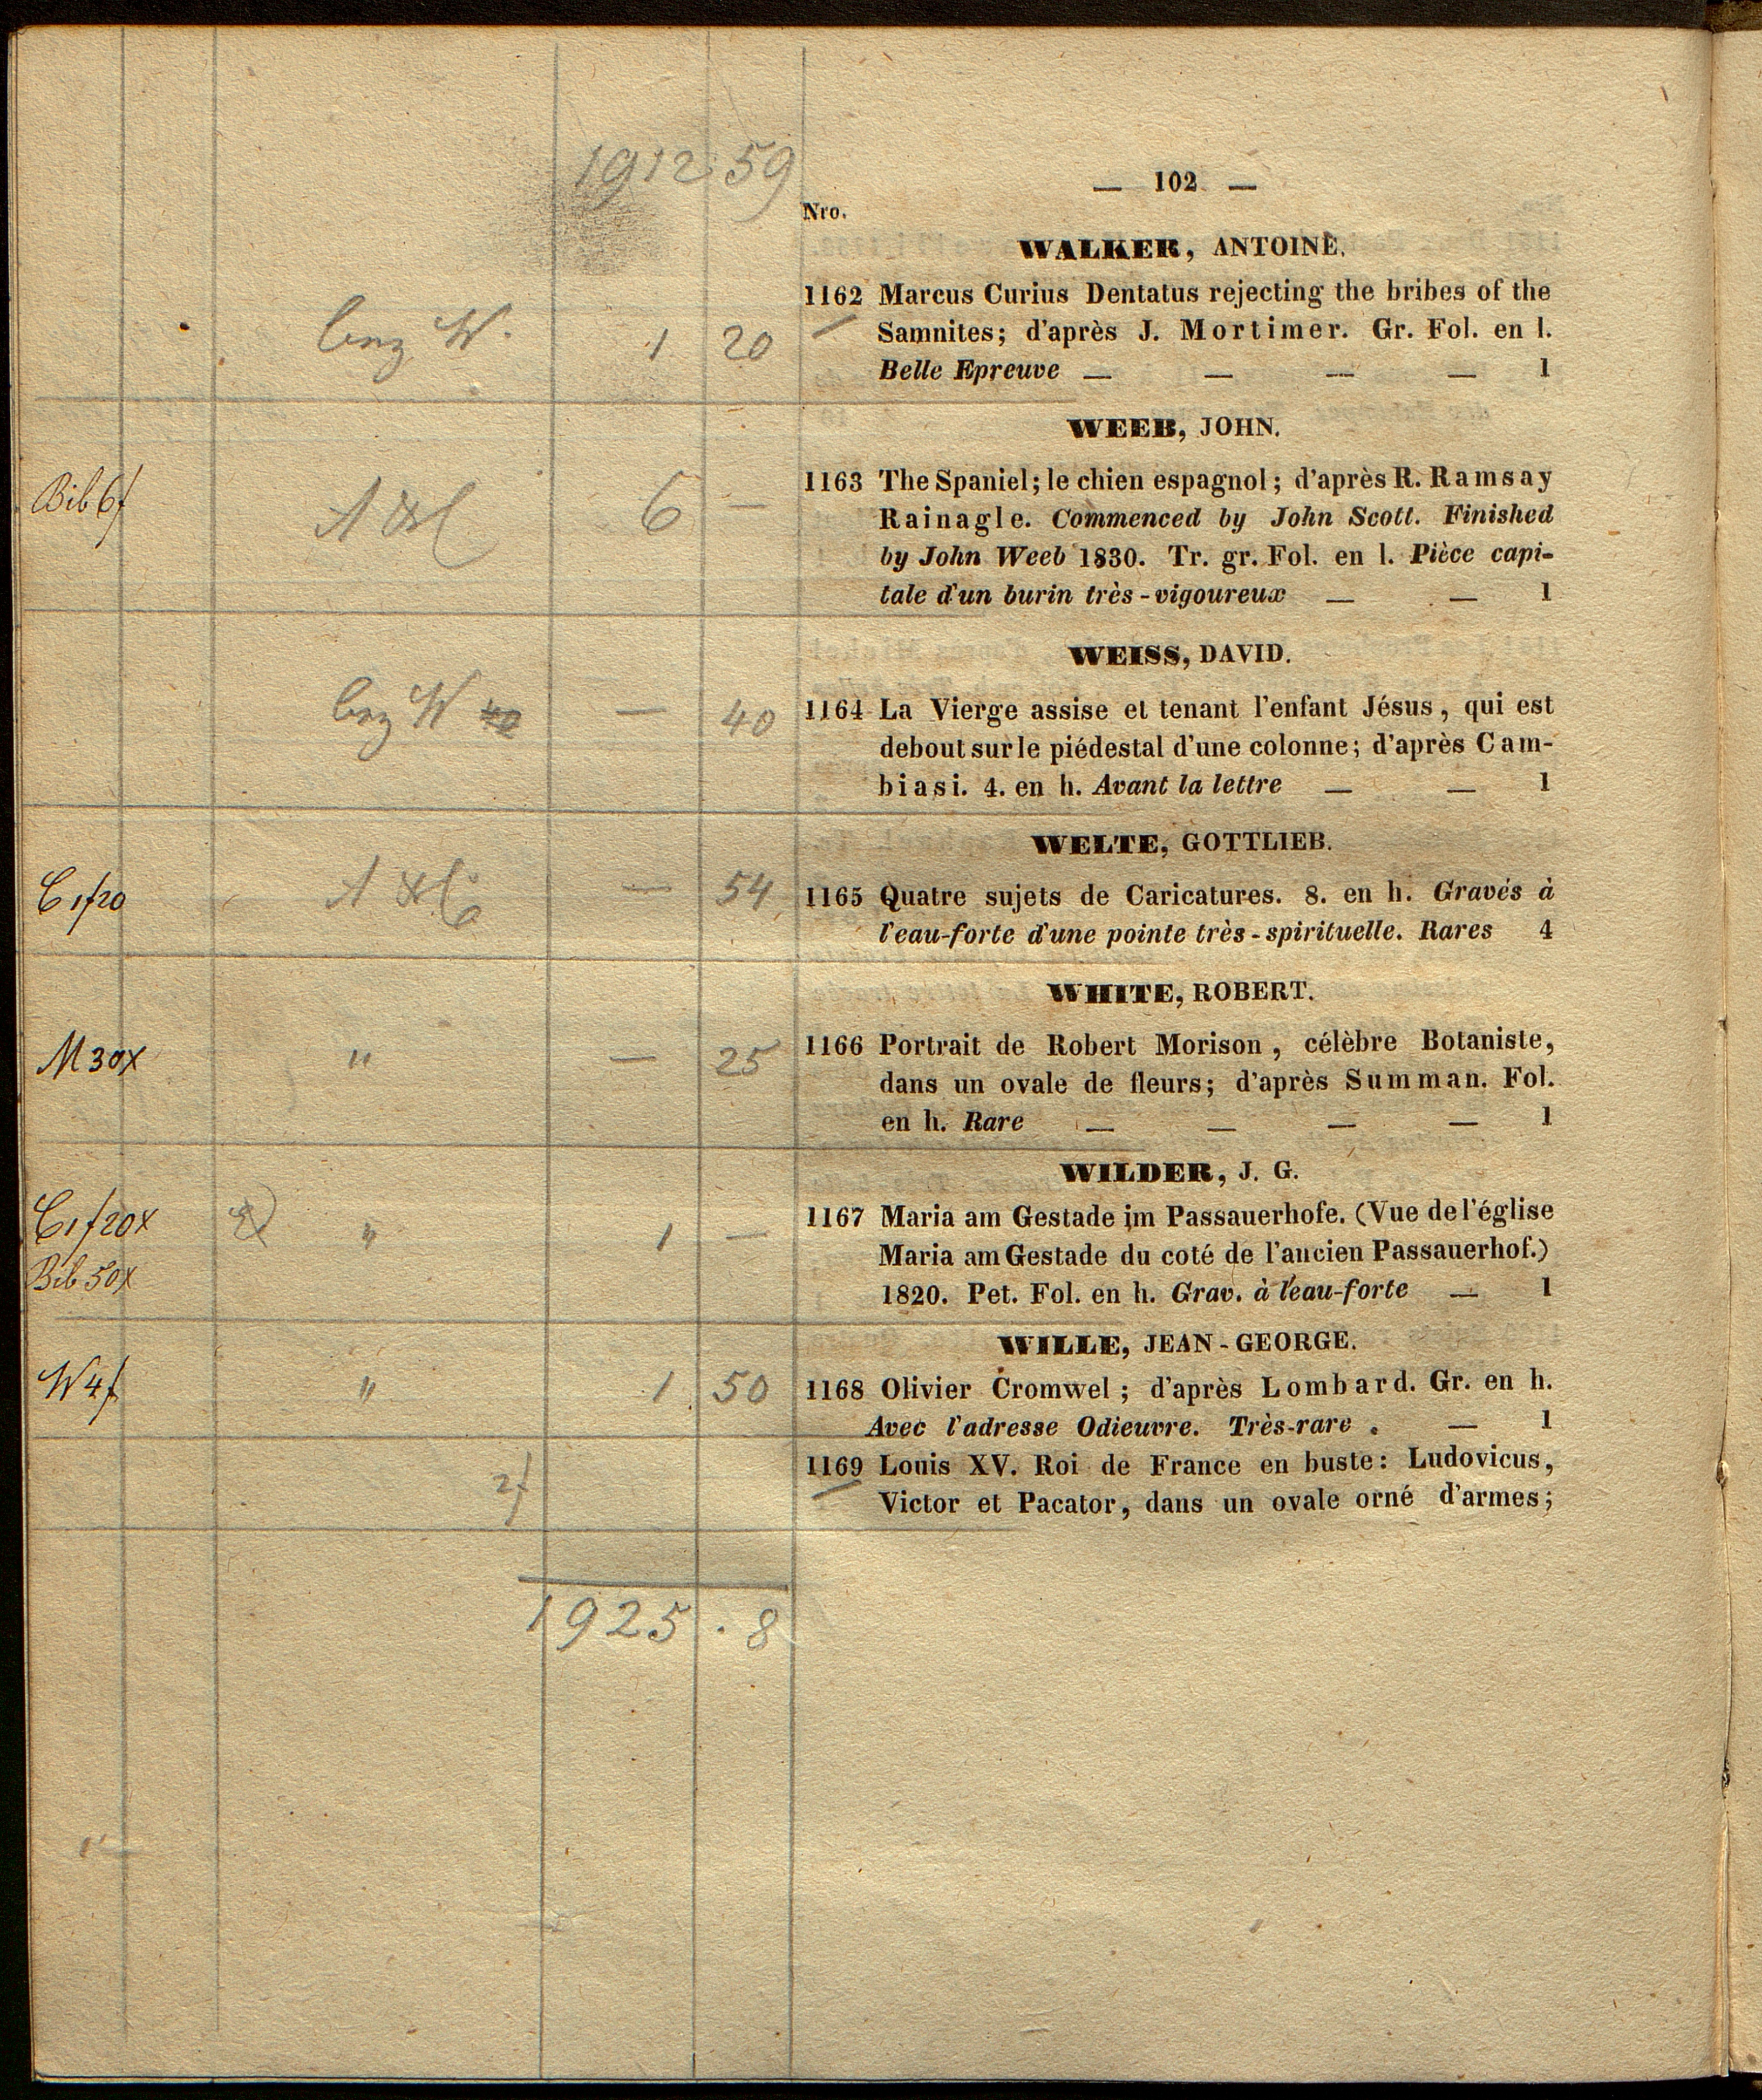 1912 59
— 102 —
Nro.
WALKER, ANTOINE.
1162 Marcus Curius Dentatus rejecting the bribes of the
Samnites; d'après J. Mortimer. Gr. Fol. en l.
Belle Epreuve — — — — 1
W. 1 20
WEEB, JOHN.
1163 The Spaniel; le chien espagnol; d'après R. Ramsay
Rainagle. Commenced by John Scott. Finished
by John Weeb 1830. Tr. gr. Fol. en l. Pièce capi-
tale d'un burin très-vigoureux — — 1
Bib 6f 6 —
WEISS, DAVID.
1164 La Vierge assise et tenant l'enfant Jésus, qui est
debout sur le piédestal d'une colonne; d'après Cam-
biasi. 4. en h. Avant la lettre — — 1
W — 40
WELTE, GOTTLIEB.
1165 Quatre sujets de Caricatures. 8. en h. Gravés à
l'eau-forte d'une pointe très-spirituelle. Rares 4
C 1f20 — 54
WHITE, ROBERT.
1166 Portrait de Robert Morison, célèbre Botaniste,
dans un ovale de fleurs; d'après Summan. Fol.
en h. Rare — — — — 1
M 30x " — 25
WILDER, J. G.
1167 Maria am Gestade im Passauerhofe. (Vue de l'église
Maria am Gestade du coté de l'ancien Passauerhof.)
1820. Pet. Fol. en h. Grav. à l'eau-forte — 1
C 1f20x " 1 —
Bib 50x
WILLE, JEAN-GEORGE.
1168 Olivier Cromwel; d'après Lombard. Gr. en h.
Avec l'adresse Odieuvre. Très-rare. — 1
W 4f " 1 50
1169 Louis XV. Roi de France en buste: Ludovicus,
Victor et Pacator, dans un ovale orné d'armes;
2f
1925 . 8